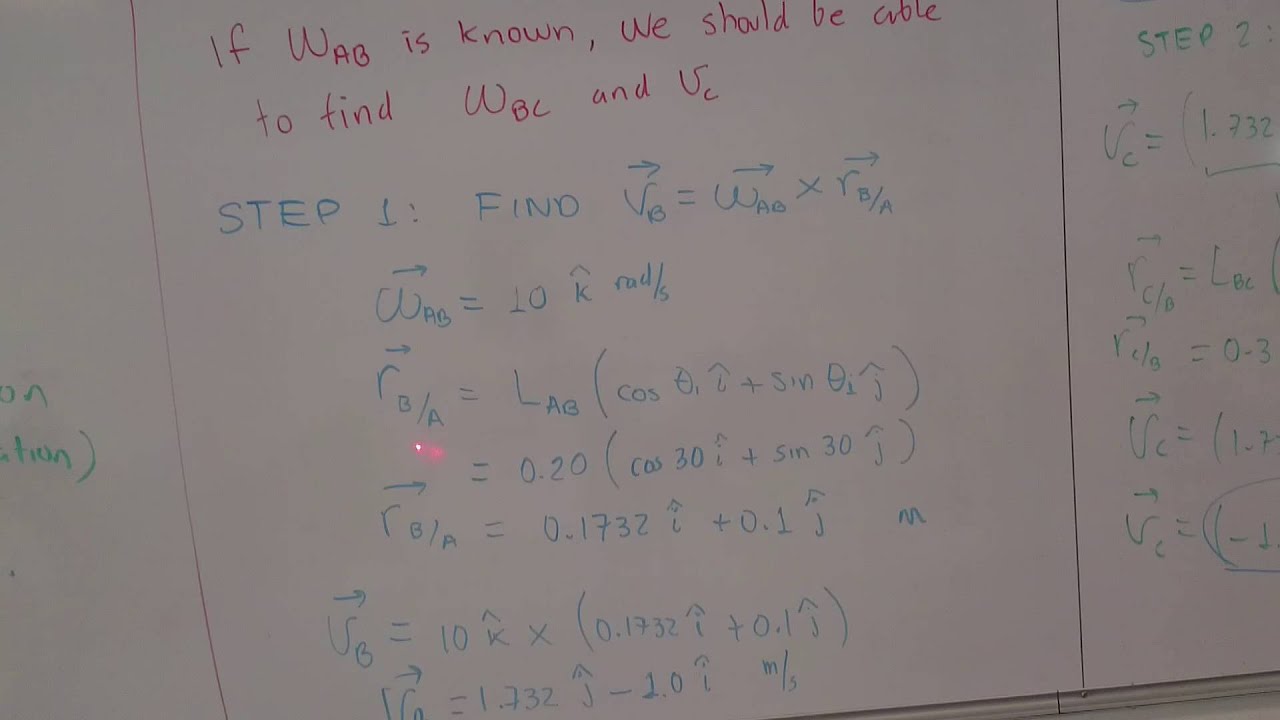 If ω_AB is known, we should be able
to find ω_BC and v_c
STEP 1: FIND v⃗_B = ω⃗_AB × r⃗_B/A
ω⃗_AB = 10 k̂ rad/s
r⃗_B/A = L_AB (cos θ₁ î + sin θ₁ ĵ)
= 0.20 (cos 30 î + sin 30 ĵ)
r⃗_B/A = 0.1732 î + 0.1 ĵ m
v⃗_B = 10 k̂ × (0.1732 î + 0.1 ĵ)
v⃗_B = 1.732 ĵ - 1.0 î m/s
on
ation)
STEP 2:
v⃗_c = (1.732
r⃗_C/B = L_BC (
r⃗_C/B = 0.3
v⃗_c = (1.7
v⃗_c = (-1.